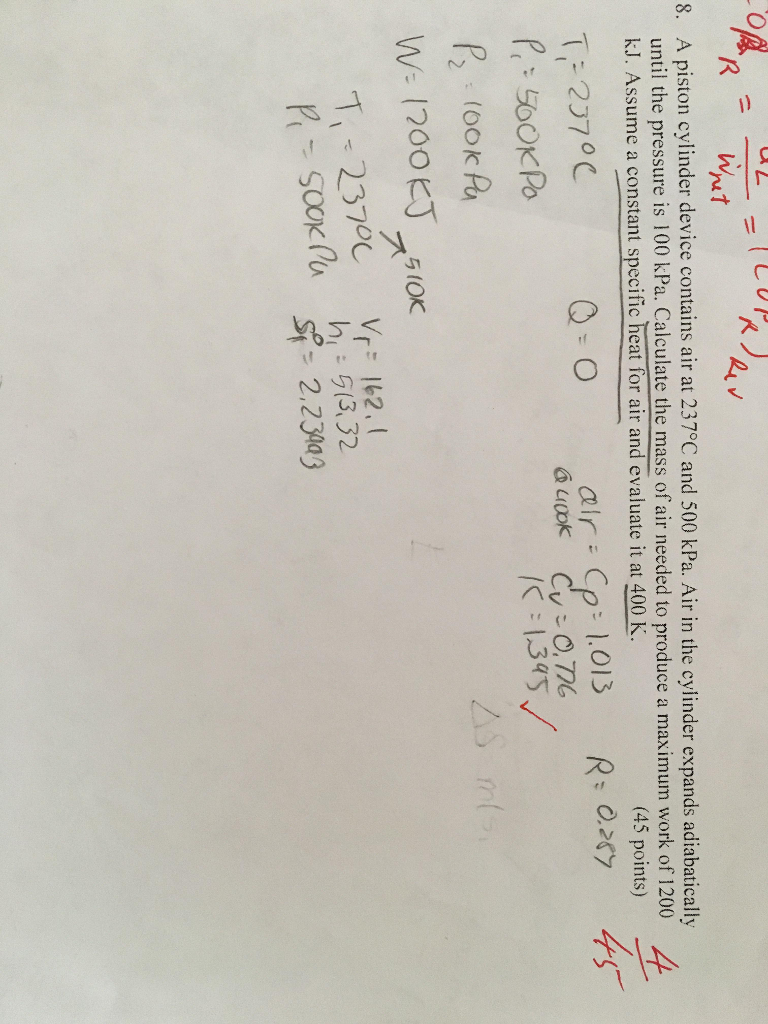 COPR = qL / Ẇnet = (COPR)Rev
8. A piston cylinder device contains air at 237°C and 500 kPa. Air in the cylinder expands adiabatically
until the pressure is 100 kPa. Calculate the mass of air needed to produce a maximum work of 1200
kJ. Assume a constant specific heat for air and evaluate it at 400 K. (45 points)
4/45
T1 = 237°C Q = 0 air = Cp = 1.013 R = 0.287
@400K Cv = 0.726
P1 = 500kPa K = 1.395 ✓
P2 = 100kPa
ΔS
W = 1200KJ
510K
T1 = 237°C Vr = 162.1
h1 = 513.32
P1 = 500kPa S°1 = 2.23993